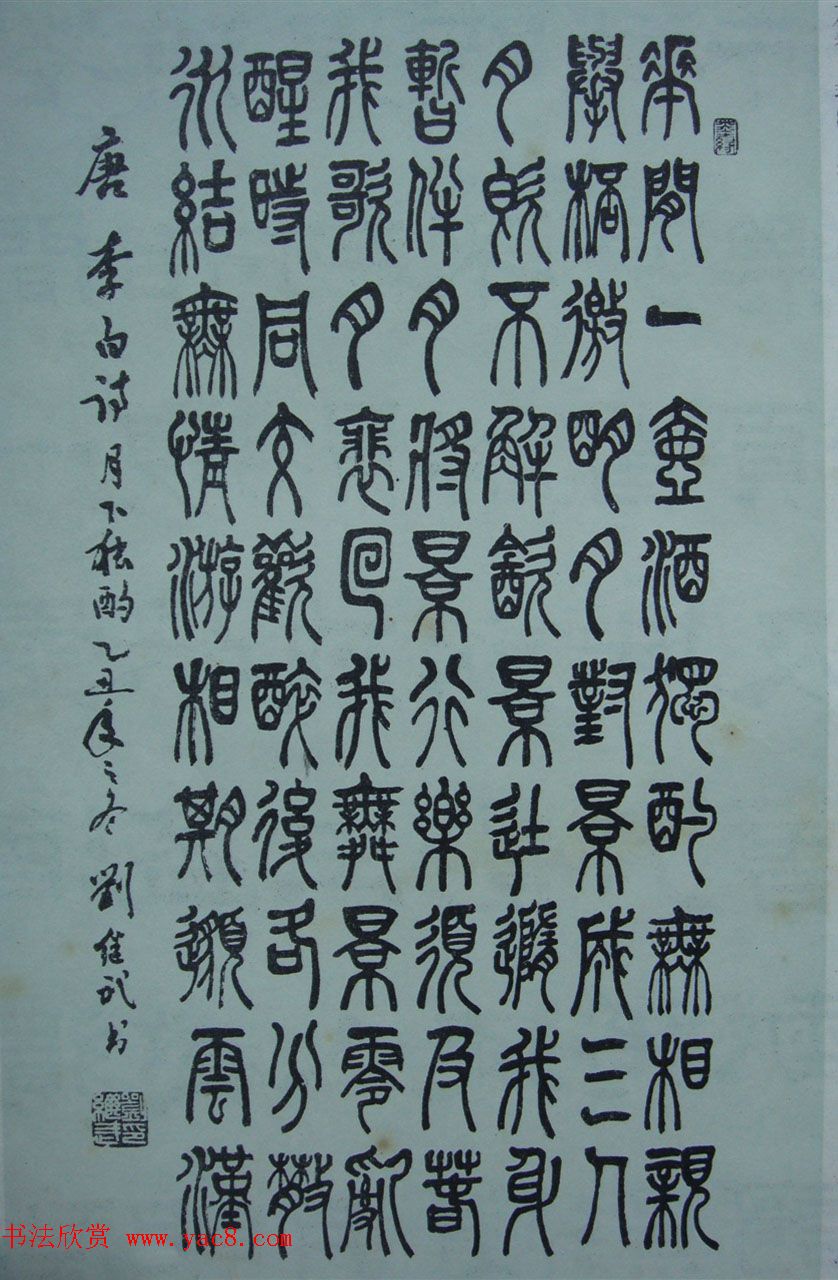 華間一壺酒獨酌無相親
舉桮徼明月對景成三人
月既不解飲景徒隨我身
暫伴月將景行樂須及春
我歌月裴回我舞景零亂
醒時同交歡醉後各分散
永結無情游相期邈雲漢
唐李白詩月下獨酌乙丑年之冬劉武书
书法欣赏 www.yac8.com